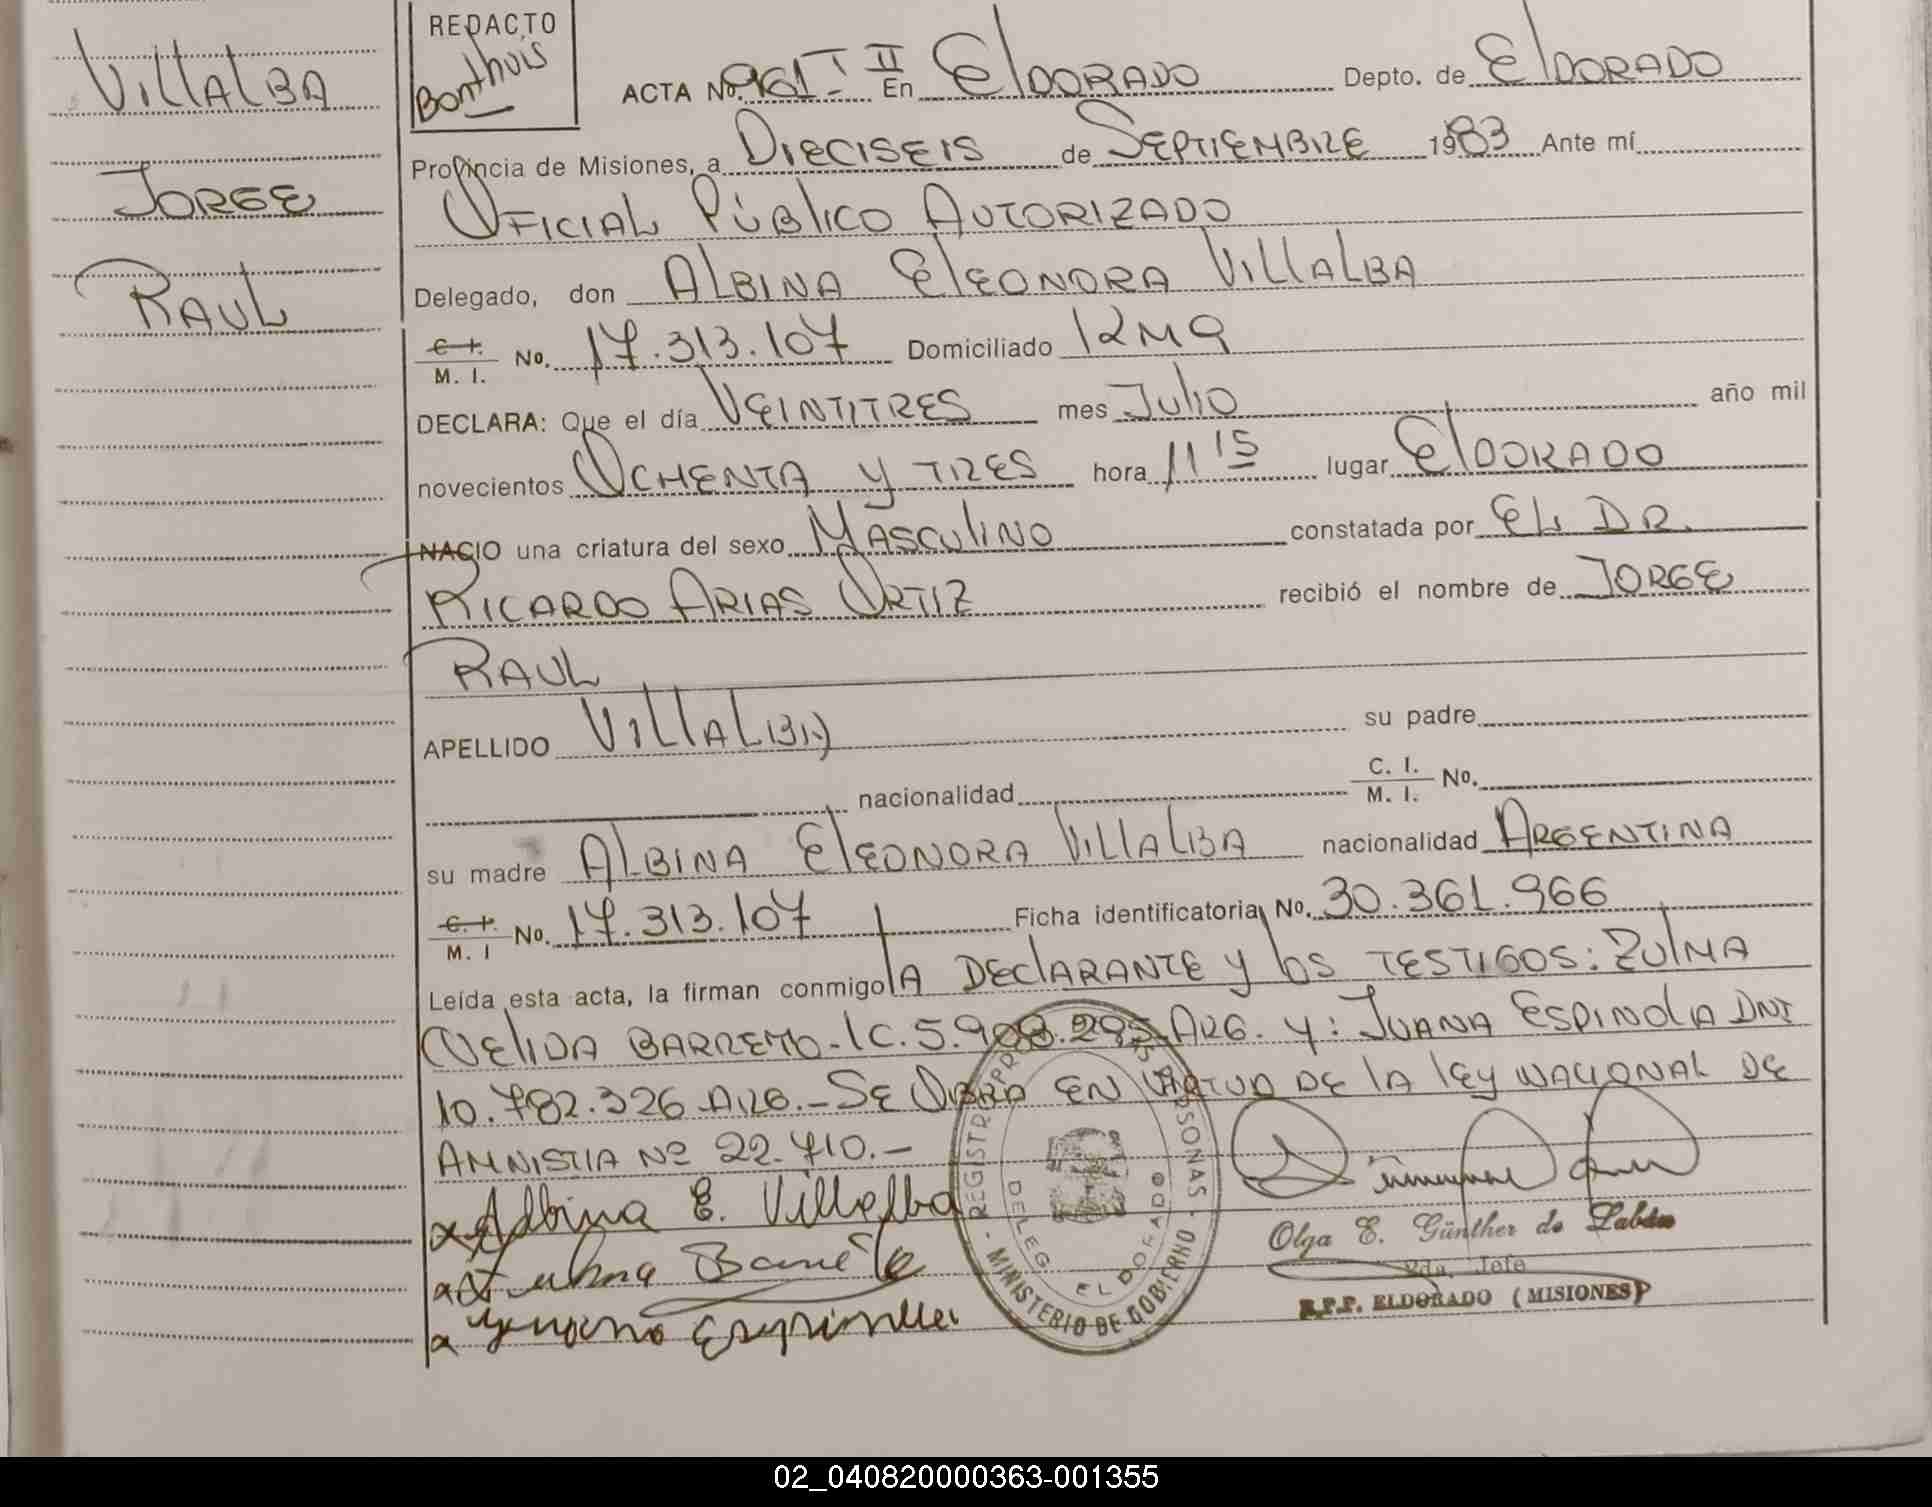 VILLALBA
JORGE
RAUL
REDACTO
Bonthuis
ACTA No. 961- T II En ELDORADO Depto. de ELDORADO
Provincia de Misiones, a DIECISEIS de SEPTIEMBRE 1983 Ante mí
OFICIAL PÚBLICO AUTORIZADO
Delegado, don ALBINA ELEONORA VILLALBA
C. I. M. I. No. 17.313.107 Domiciliado 12 M 9
DECLARA: Que el día VEINTITRES mes JULIO año mil
novecientos OCHENTA Y TRES hora 11 15 lugar ELDORADO
NACIO una criatura del sexo MASCULINO constatada por EL DR.
RICARDO ARIAS ORTIZ recibió el nombre de JORGE
RAUL
APELLIDO VILLALBA su padre
nacionalidad C. I. M. I. No.
su madre ALBINA ELEONORA VILLALBA nacionalidad ARGENTINA
C. I. M. I No. 17.313.107 Ficha identificatoria No. 30.361.966
Leída esta acta, la firman conmigo LA DECLARANTE Y LOS TESTIGOS: ZULMA
NELIDA BARRETO-LC. 5.908.295 ARG. Y: JUANA ESPINOLA DNI
10.782.326 ARG.- SE OBRA EN VIRTUD DE LA LEY NACIONAL DE
AMNISTIA Nº 22.710.-
Albina E. Villalba
REGISTR PR SONAS - MINISTERIO DE GOBIERNO -
DELEG. ELDORADO
Olga E. Günther de
2da. Jefe
R.P.P. ELDORADO (MISIONES)
02_040820000363-001355